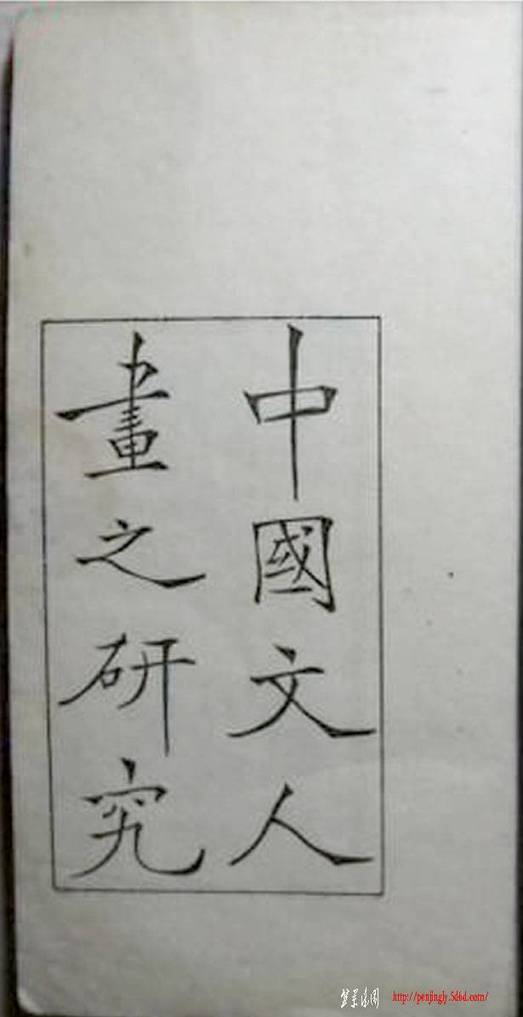 中國文人
畫之研究
http://penjingly.5d6d.com/